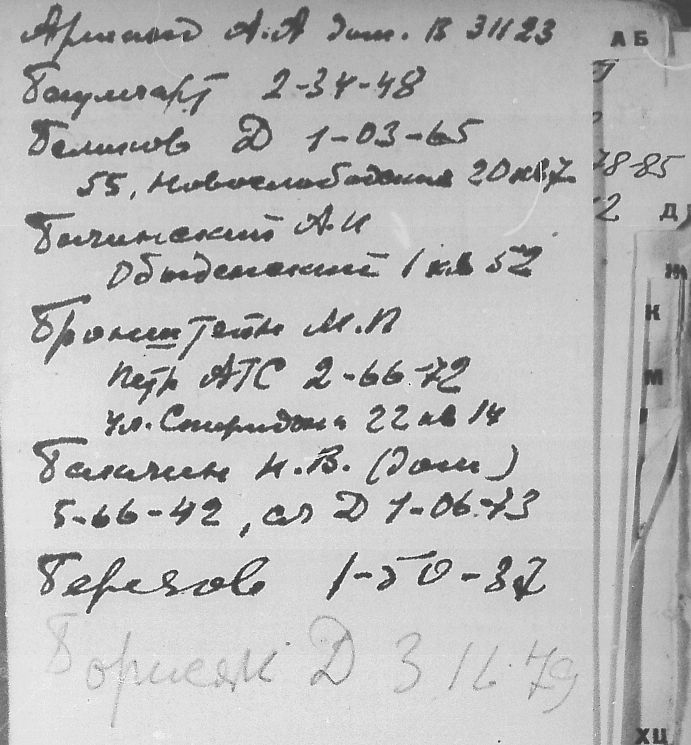 А.А дом. В 31123
Баумгарт 2-34-48
Беликов Д 1-03-65
55, Новослободская 20 кв 7
А.И
Обыденский 1 кв 52
Бронштейн М.П
Петр АТС 2-66-72
ул. Спиридона 22 кв 14
Н.В. (дом)
5-66-42, сл Д 1-06-73
Березов 1-50-37
Борисяк Д 3 16 79
АБ
78-85
2 Д
К
М
ХЦ